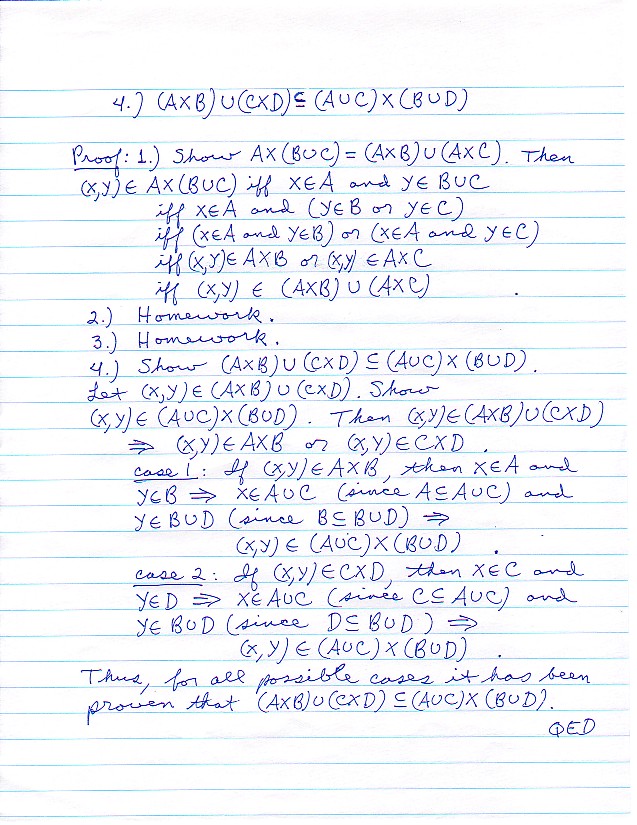 4.) (A×B)∪(C×D)⊆(A∪C)×(B∪D)
Proof: 1.) Show A×(B∪C)=(A×B)∪(A×C). Then
(x,y)∈ A×(B∪C) iff x∈A and y∈ B∪C
iff x∈A and (y∈B or y∈C)
iff (x∈A and y∈B) or (x∈A and y∈C)
iff (x,y)∈ A×B or (x,y) ∈ A×C
iff (x,y) ∈ (A×B) ∪ (A×C) .
2.) Homework.
3.) Homework.
4.) Show (A×B)∪(C×D) ⊆ (A∪C)×(B∪D).
Let (x,y)∈ (A×B)∪(C×D). Show
(x,y)∈ (A∪C)×(B∪D). Then (x,y)∈(A×B)∪(C×D)
⇒ (x,y)∈A×B or (x,y)∈C×D.
case 1: If (x,y)∈A×B, then x∈A and
y∈B ⇒ x∈A∪C (since A⊆A∪C) and
y∈B∪D (since B⊆B∪D) ⇒
(x,y) ∈ (A∪C)×(B∪D) .
case 2: If (x,y)∈C×D, then x∈C and
y∈D ⇒ x∈A∪C (since C⊆A∪C) and
y∈B∪D (since D⊆B∪D) ⇒
(x,y) ∈ (A∪C)×(B∪D) .
Thus, for all possible cases it has been
proven that (A×B)∪(C×D)⊆(A∪C)×(B∪D).
QED